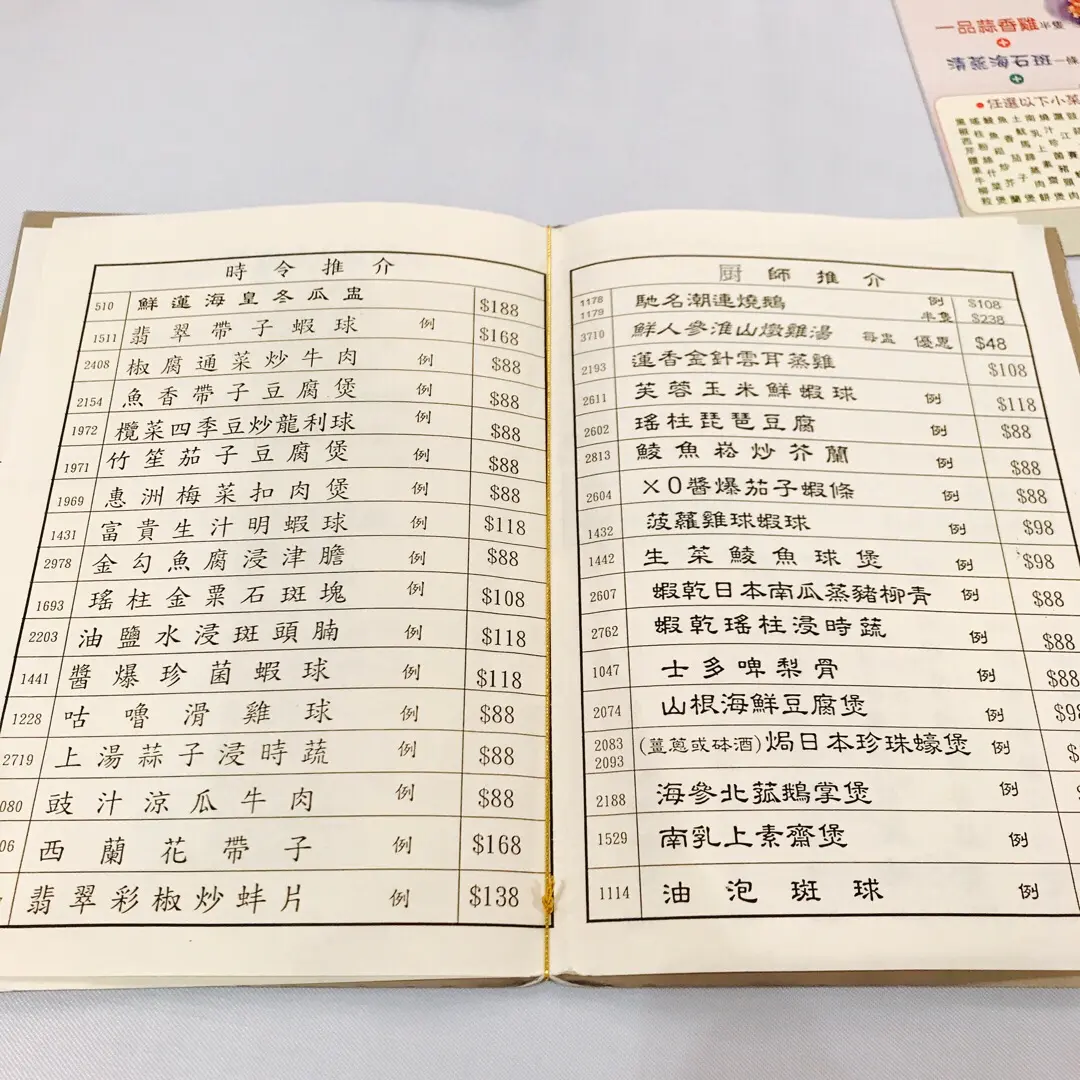 一品蒜香雞半隻
清蒸海石斑一條
任選以下小菜
時令推介
510 鮮蓮海皇冬瓜盅 $188
1511 翡翠帶子蝦球 例 $168
2408 椒腐通菜炒牛肉 例 $88
2154 魚香帶子豆腐煲 例 $88
1972 欖菜四季豆炒龍利球 例 $88
1971 竹笙茄子豆腐煲 例 $88
1969 惠洲梅菜扣肉煲 例 $88
1431 富貴生汁明蝦球 例 $118
2978 金勾魚腐浸津膽 例 $88
1693 瑤柱金粟石斑塊 例 $108
2203 油鹽水浸斑頭腩 例 $118
1441 醬爆珍菌蝦球 例 $118
1228 咕嚕滑雞球 例 $88
2719 上湯蒜子浸時蔬 例 $88
080 豉汁涼瓜牛肉 例 $88
06 西蘭花帶子 例 $168
翡翠彩椒炒蚌片 例 $138
厨師推介
1178 馳名潮連燒鵝 例 $108
1179 半隻 $238
3710 鮮人參淮山燉雞湯 每盅 優惠 $48
2193 蓮香金針雲耳蒸雞 $108
2611 芙蓉玉米鮮蝦球 例 $118
2602 瑤柱琵琶豆腐 例 $88
2813 鯪魚崧炒芥蘭 例 $88
2604 XO醬爆茄子蝦條 例 $88
1432 菠蘿雞球蝦球 例 $98
1442 生菜鯪魚球煲 例 $98
2607 蝦乾日本南瓜蒸豬柳青 例 $88
2762 蝦乾瑤柱浸時蔬 例 $88
1047 士多啤梨骨 例 $88
2074 山根海鮮豆腐煲 例 $98
2083 (薑蔥或砵酒)焗日本珍珠蠔煲 例 $
2093
2188 海參北菰鵝掌煲 例
1529 南乳上素齋煲 例
1114 油泡斑球 例